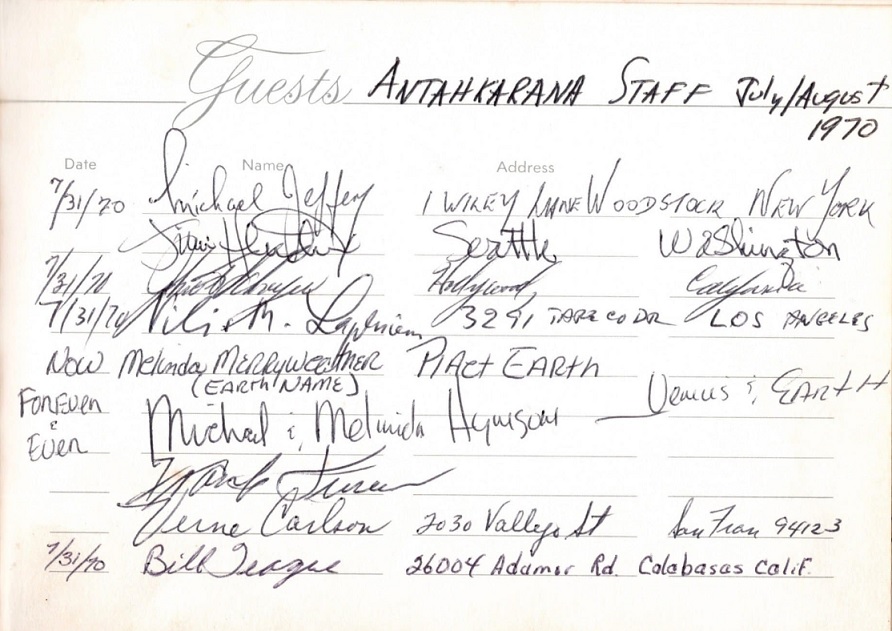 Guests ANTAHKARANA STAFF July/August
1970
Date Name Address
7/31/70 Michael Jeffery 1 WILEY LANE WOODSTOCK NEW YORK
Jimi Hendrix Seattle Washington
7/31/70 Hollywood, California
7/31/70 3291 TARECO DR LOS ANGELES
NOW Melinda MERRYWEATHER PlAct EARTH
(EARTH NAME)
FOREVER & EVER Michael & Melinda Hynson — Venus & EARTH
Verne Carlson 2030 Vallejo St San Fran 94123
7/31/70 Bill Teague 26004 Adamor Rd. Calabasas Calif.